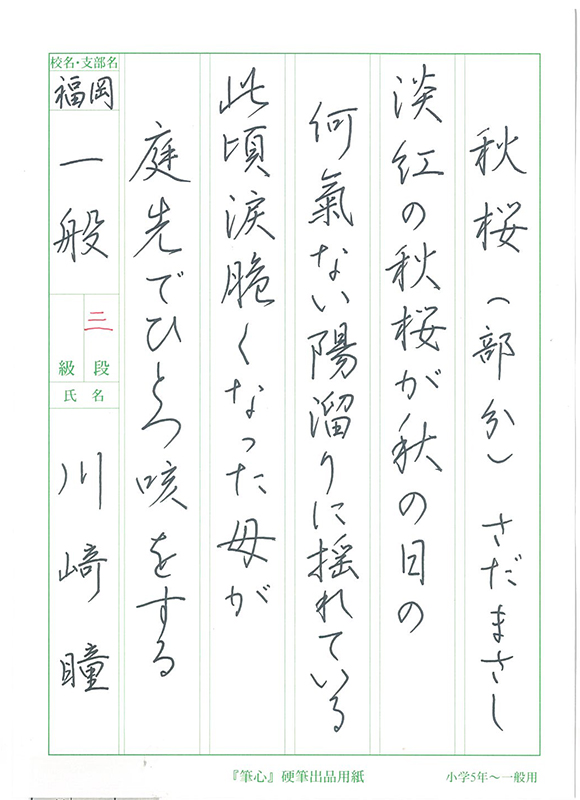 秋桜(部分) さだまさし
淡紅の秋桜が秋の日の
何氣ない陽溜りに揺れている
此頃涙脆くなった母が
庭先でひとつ咳をする
校名・支部名
福岡
一般
三
級 段
氏 名
川崎瞳
『筆心』硬筆出品用紙
小学5年〜一般用